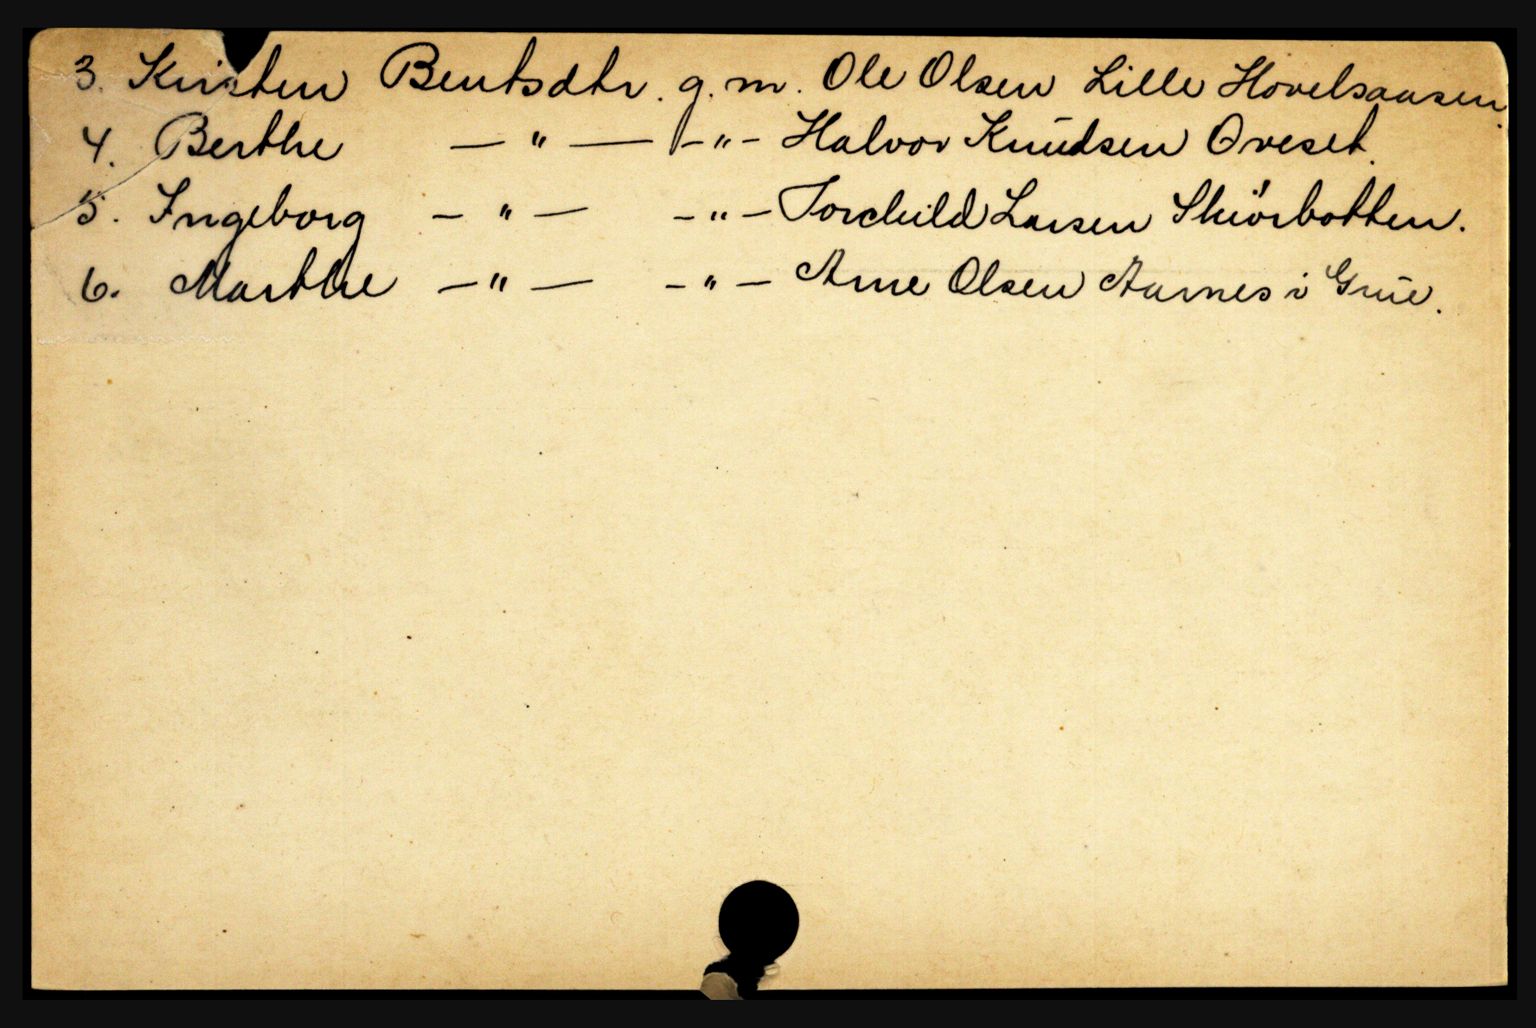 3. Kirsten Bentsdtr. g.m. Ole Olsen Lille Hovelsaasen.
4. Berthe — " — - " - Halvor Knudsen Overset.
5. Ingeborg — " — - " - Torchild Larsen Skiörbotten.
6. Marthe — " — - " - Arne Olsen Aarnes i Grue.